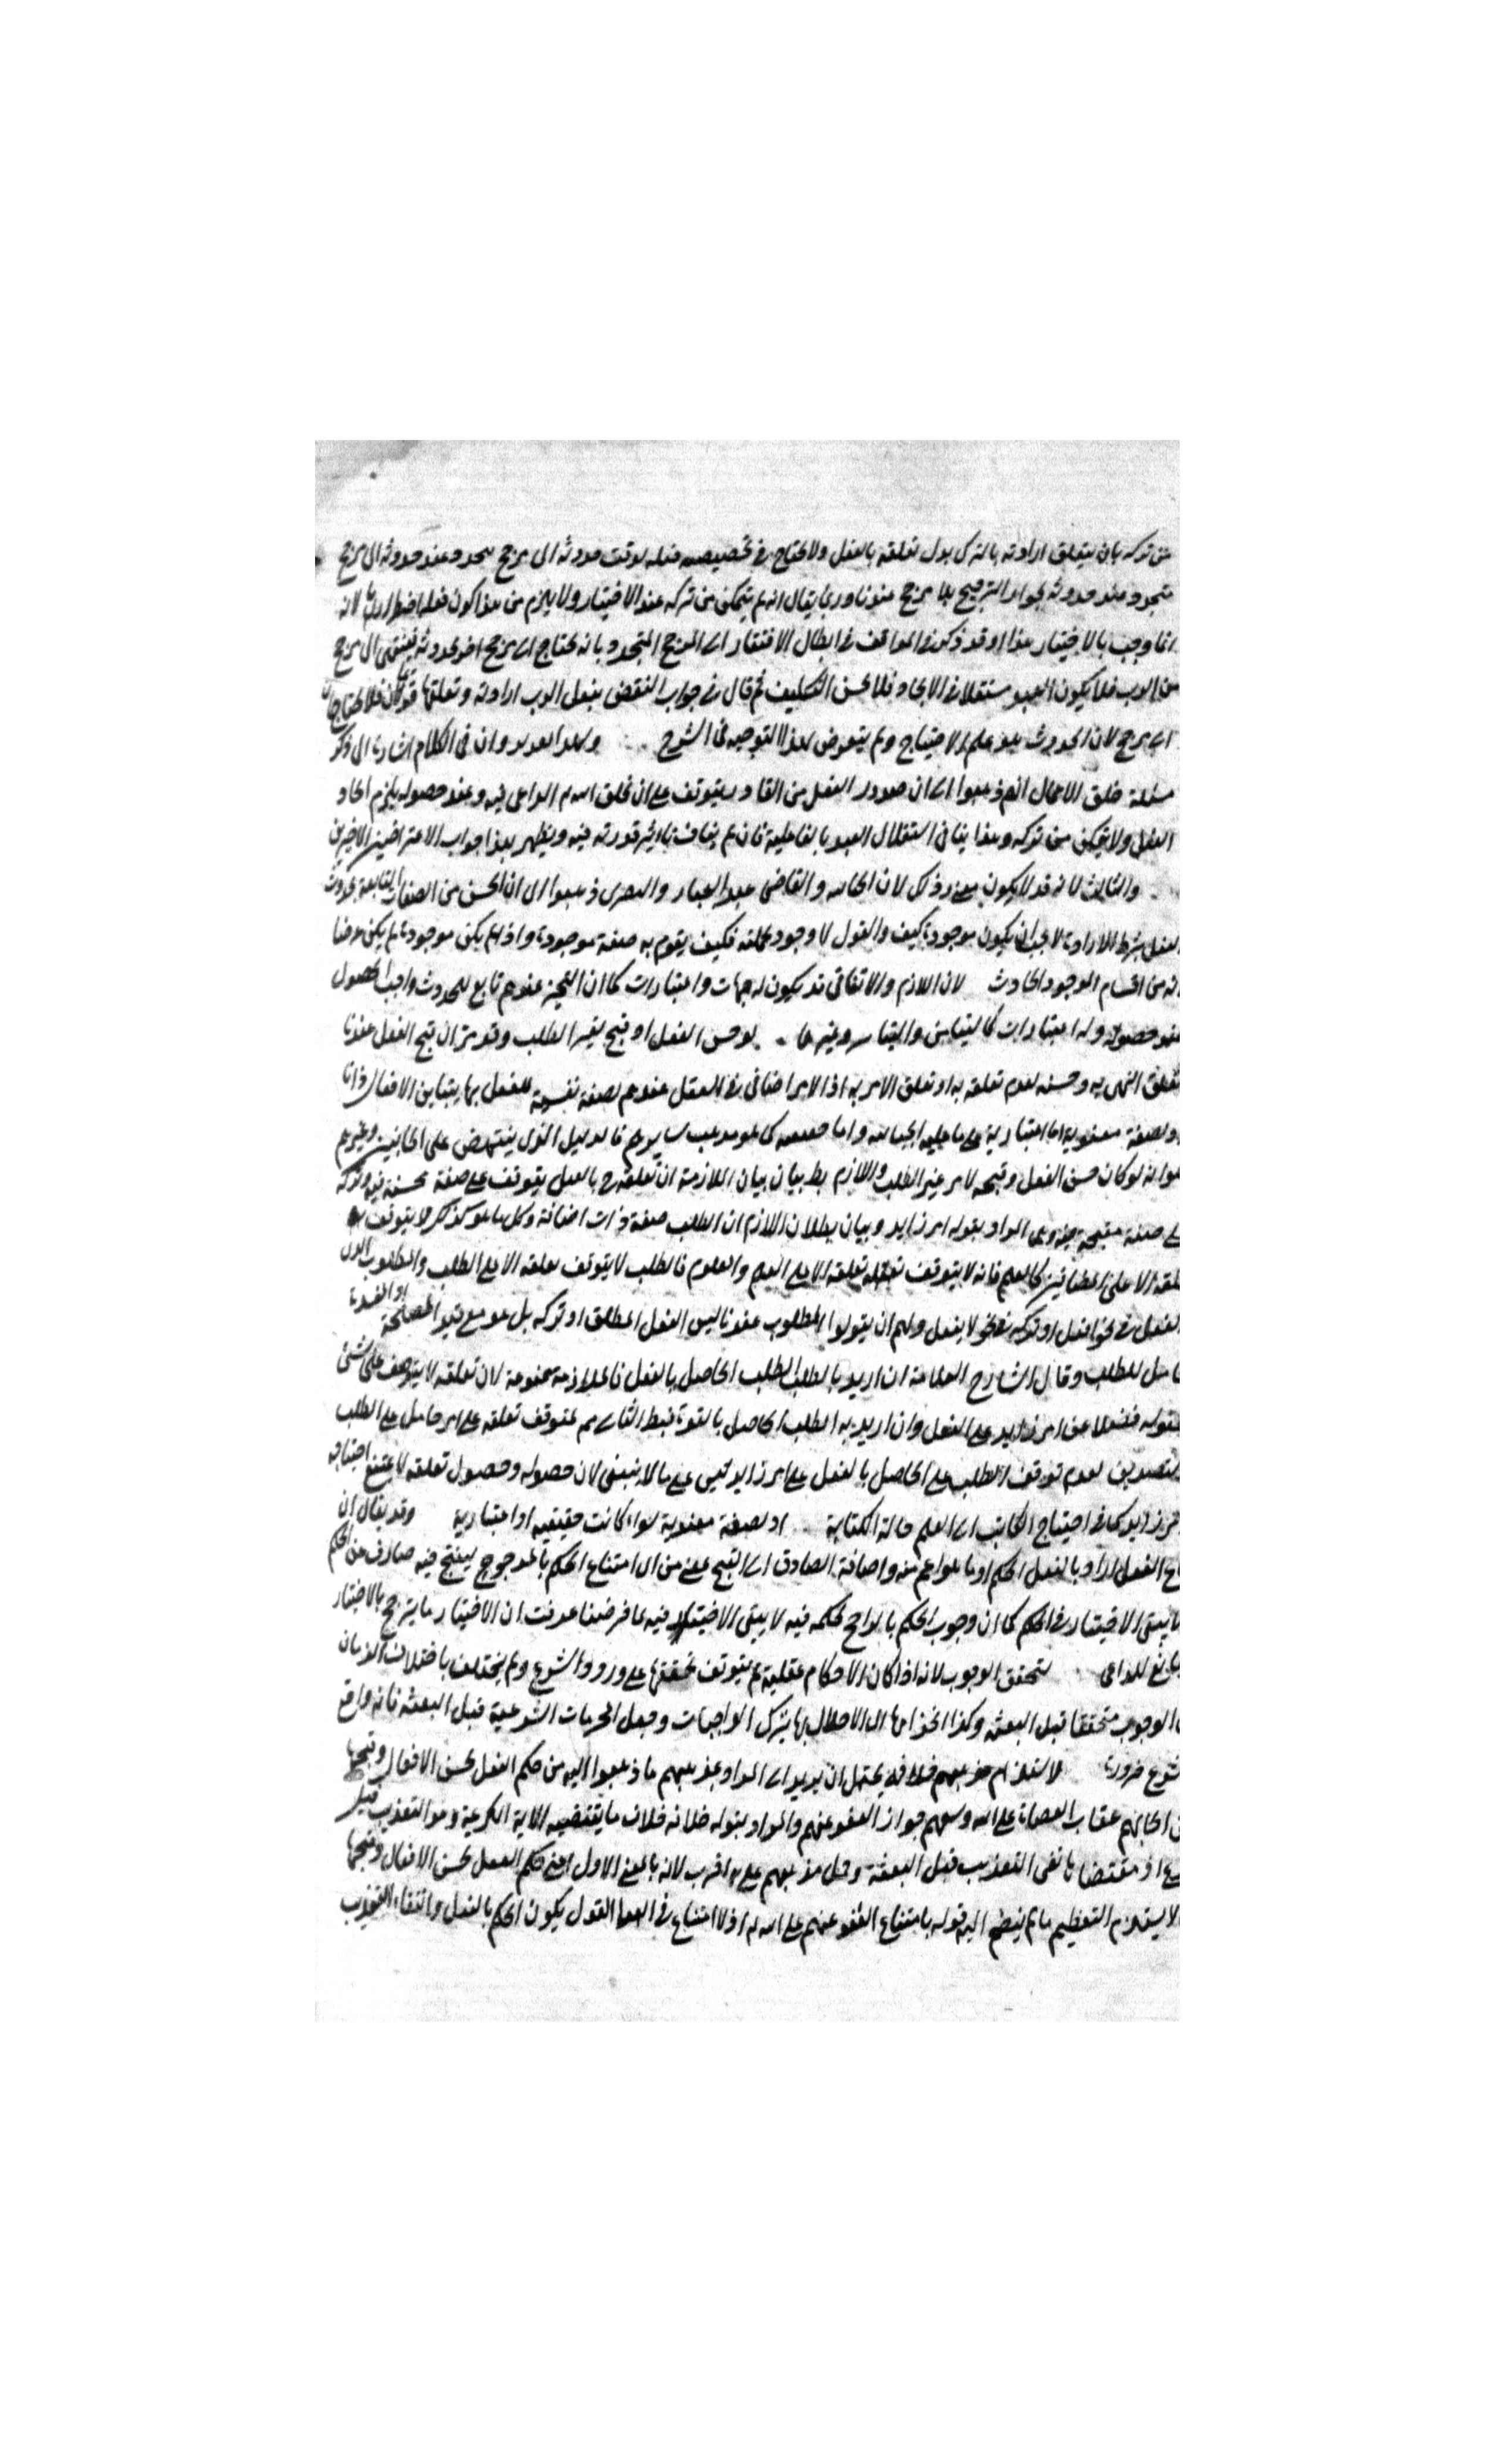 من تركه بان يتعلق ارادته بالترك بدل تعلقه بالفعل ولا يحتاج في تخصيصه فعله بوقت حدوثه الى مرجح يتجدد عند حدوثه الى مرجح
متجدد عند حدوثه لجواز الترجيح بلا مرجح عندنا وربما يقال انه لم يتمكن من تركه عند الاختيار ولا يلزم من هذا كون فعله اضطراريا لانه
انما وجب بالاختيار هذا وقد ذكر في المواقف في ابطال الافتقار الى المرجح المتجدد بانه يحتاج الى مرجح اخر لحدوثه فينتهى الى مرجح
من الرب فلا يكون العبد مستقلا في الايجاد فلا يحسن التكليف ثم قال في جواب النقض بفعل الرب ارادته وتعلقها قديمان فلا يحتاجان
الى مرجح لان الحدوث هو علة الاحتياج ولم يتعرض لهذا التوجيه في الشرح وان في الكلام اشارة الى ذكر
مسئلة خلق الاعمال انهم ذهبوا الى ان صدور الفعل من القادر يتوقف على ان يخلق الله الداعى فيه وعند حصوله يلزم ايجاد
الفعل ولا يتمكن من تركه وهذا ينافى استقلال العبد بالفاعلية فان لم يناف تاثير قدرته فيه ويظهر بهذا جواب الاعتراضين الاخيرين
والثالث لانه قد لا يكون ذلك لان والقاضى عبد الجبار والبصرى ذهبوا الى ان الحسن من الصفات التابعة لحدوث
الفعل بشرط الارادة لا يجب ان يكون موجودة كيف والقول لا وجود لجملته فكيف يقوم به صفة موجودة واذا لم يكن موجودة لم يكن عرضا
لانه من اقسام الموجود الحادث لان اللازم والاتفاقى قد يكون له جهات واعتبارات كما ان التحيز عندهم تابع للحدوث واجب الحصول
عند حصوله وله اعتبارات كالتيامن والتياسر وغيرها لو حسن الفعل او قبح لغير الطلب وقد مر ان قبح الفعل عندنا
تعلق النهى به وحسنه لعدم تعلقه به او تعلق الامر به اذ الامر اضافى في العقل عندهم لصفة نفسية للفعل بها يتباين الافعال ذاتا
او لصفة معنوية اما اعتبارية على ما عليه واما كما هو مذهب سايرهم فالدليل الذى ينتهض على الجبائيين وغيرهم
هو انه لو كان حسن الفعل وقبحه لامر غير الطلب واللازم بط بيان بيان الملازمة ان تعلقه ح بالفعل يتوقف على صفة محسنة فيه وتركه
على صفة مقبحة فيه وهى المراد بقوله امر زايد وبيان بطلان اللازم ان الطلب صفة ذات اضافة وكل ما هو كذلك لا يتوقف
تعلقه الا على المضافين كالعلم فانه لا يتوقف تعلقه الا على العلم والمعلوم فالطلب لا يتوقف تعلقه الا على الطلب والمطلوب الذى
الفعل في نحو افعل او تركه في نحو لا يفعل ولهم ان يقولوا المطلوب عندنا ليس الفعل المطلق او تركه بل هو مع قيد المصلحة او المفسدة
حاصل للطلب وقال الشارح العلامة ان اريد بالطلب الطلب الحاصل بالفعل فالملازمة ممنوعة لان تعلقه لا يتوقف على شئ
لحصوله فضلا عن امر زايد على الفعل وان اريد به الطلب الحاصل بالقوة فبط الثانى مم لتوقف تعلقه على امر حاصل على الطلب
لعدم توقف الطلب على الحاصل بالفعل على امر زايد ليس على ما لا ينبغى لان حصوله وحصول تعلقه لا يمنع احتياجه
لامر زايد كما في احتياج الكاتب الى العلم حالة الكتابة او لصفة معنوية سواء كانت حقيقية او اعتبارية وقد يقال ان
الفعل اراد بالفعل الحكم او ما هو اعم منه واضافة الصادق الى القبح معنى من اى امتناع الحكم بالمرجوح لقبح فيه صارف عن الحكم
ما يبقى الاختيار في الحكم كما ان وجوب الحكم بالراجح لحكمة فيه لا يبقى الاختيار فيه لما فرضنا عرفت ان الاختيار ما يترجح بالاختيار
تابع للداعى لتحقق الوجوب لانه اذا كان الاحكام عقلية لم يتوقف تحققها على ورود الشرع ولم يختلف باختلاف الزمان
الوجوب متحققا قبل البعثة وكذا الحرام الاخلال بها بترك الواجبات وجعل المحرمات الشرعية قبل البعثة فانه واقع
ضرورة لاستلزام مذهبهم خلافه يحتمل ان يريد الى المراد بمذهبهم ما ذهبوا اليه من حكم العقل بحسن الافعال وقبحها
من ايجابهم عقاب العصاة على الله ومنعهم جواز العفو عنهم والمراد بقوله خلافه خلاف ما يقتضيه الاية الكريمة وهو التعذيب قبل
اذ مقتضاها نفى التعذيب قبل البعثة وحمل مذهبهم عليه اقرب لانه بالمعنى الاول اعنى حكم العقل بحسن الافعال وقبحها
لا يستلزم التعظيم ما لم ينضم اليه قوله بامتناع العفو عنهم على الله اذ لا امتناع في القول يكون الحكم بالفعل وانتفاء التعذيب